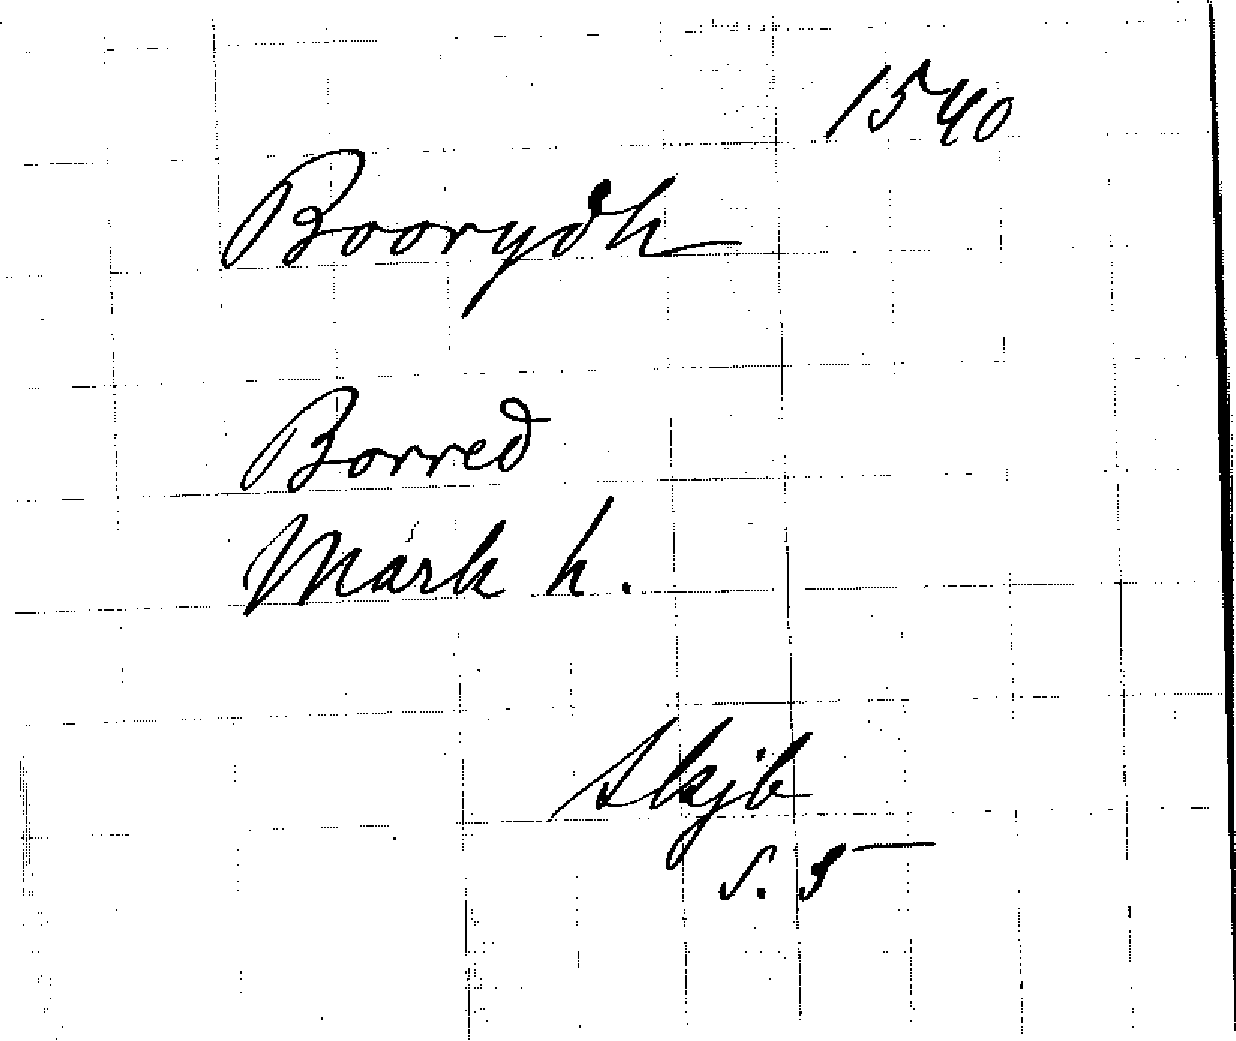 1540
Boorydh
Borred
Mark h.
Skjb
S. 5